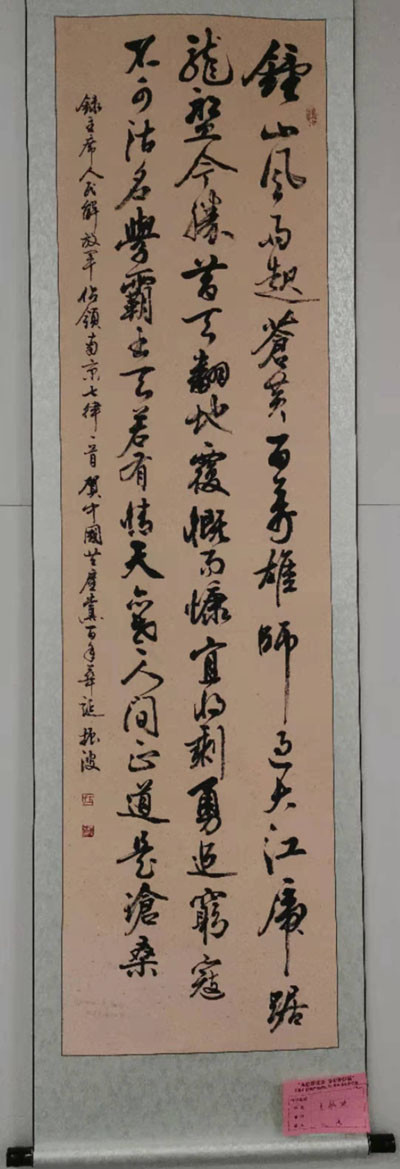 鐘山風雨起蒼黄百萬雄師過大江虎踞
龍盤今勝昔天翻地覆慨而慷宜將剩勇追窮寇
不可沽名學霸王天若有情天亦老人間正道是滄桑
錄主席人民解放軍佔領南京七律一首賀中國共產黨百年華誕 振波